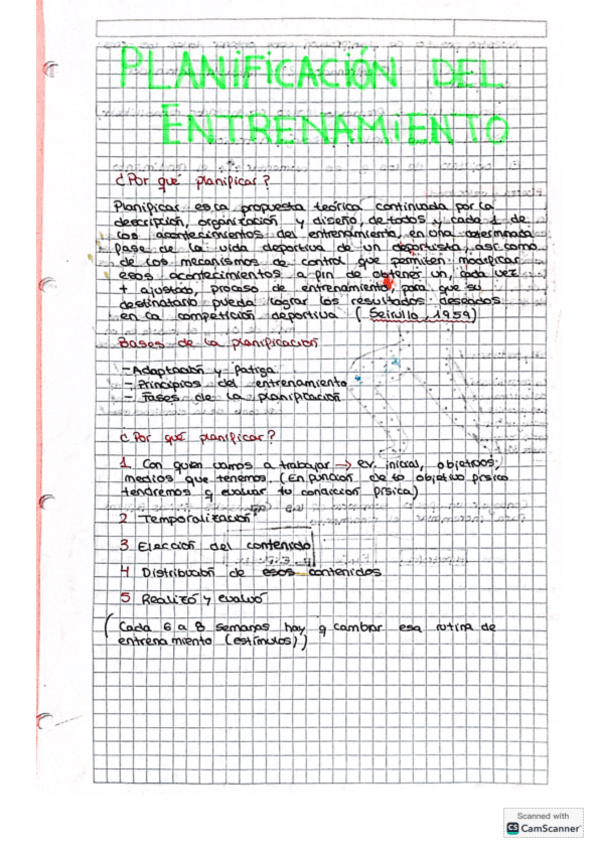 PLANiFiCACiÓN DEL
ENTRENAMiENTO
¿Por qué planificar?
Planificar, es la propuesta teórica continuada por la
descripción, organización y diseño, de todos y cada 1 de
los acontecimientos del entrenamiento, en una determinada
fase de la vida deportiva de un deportista, así como
de los mecanismos de control que permiten modificar
esos acontecimientos a fin de obtener un, cada vez
+ ajustado, proceso de entrenamiento, para que su
destinatario pueda lograr los resultados deseados
en la competición deportiva (Seirullo, 1959)
Bases de la planificación
- Adaptación y fatiga
- Principios del entrenamiento
- Fases de la planificación
¿Por qué planificar?
1. Con quien vamos a trabajar → ev. inicial, objetivos,
medios que tenemos. (En función de to objetivo físico
tendremos q evaluar tu condición física)
2 Temporalización
3 Elección del contenido
4 Distribución de esos contenidos
5 Realizó y evaluó
(Cada 6 a 8 semanas hay q cambiar esa rutina de
entrenamiento (estímulos))
Scanned with
CS CamScanner